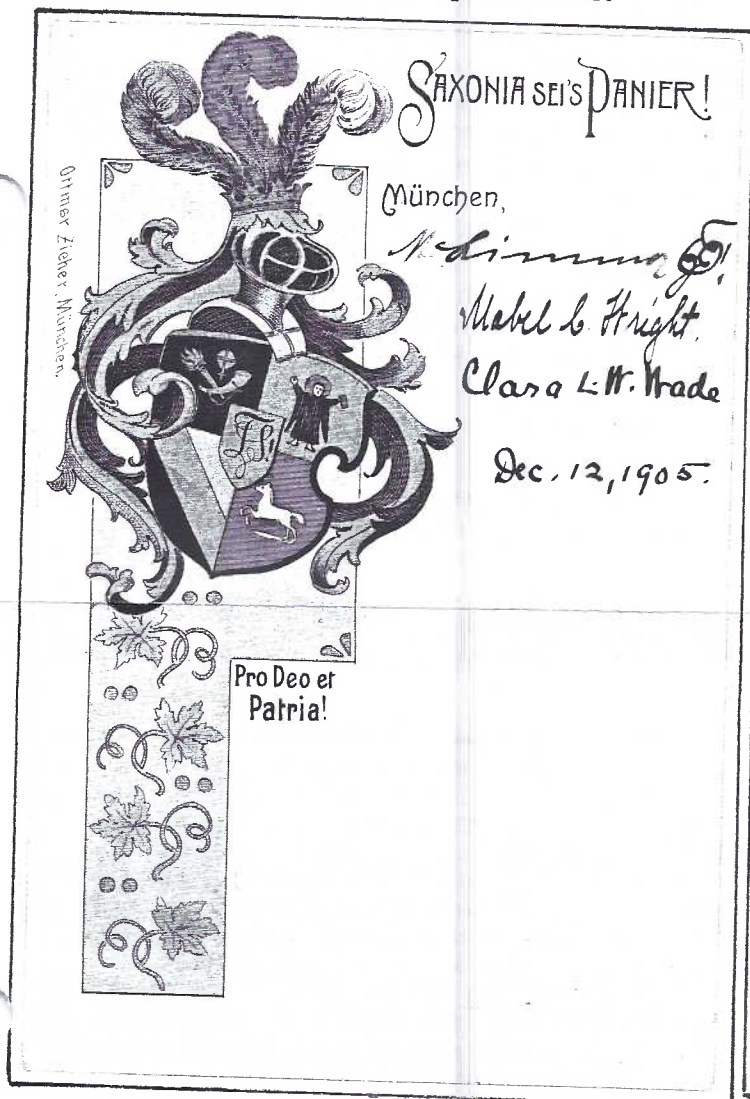 SAXONIA SEI'S PANIER!
München,
Mabel C. Wright.
Clara L. W. Wade
Dec. 12, 1905.
Ottmar Zieher, München.
Pro Deo et
Patria!